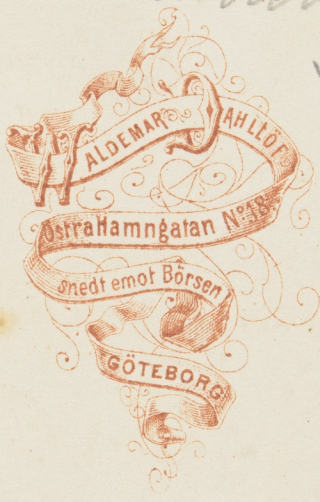 WALDEMAR DAHLLÖF
Östra Hamngatan No. 18.
snedt emot Börsen
GÖTEBORG